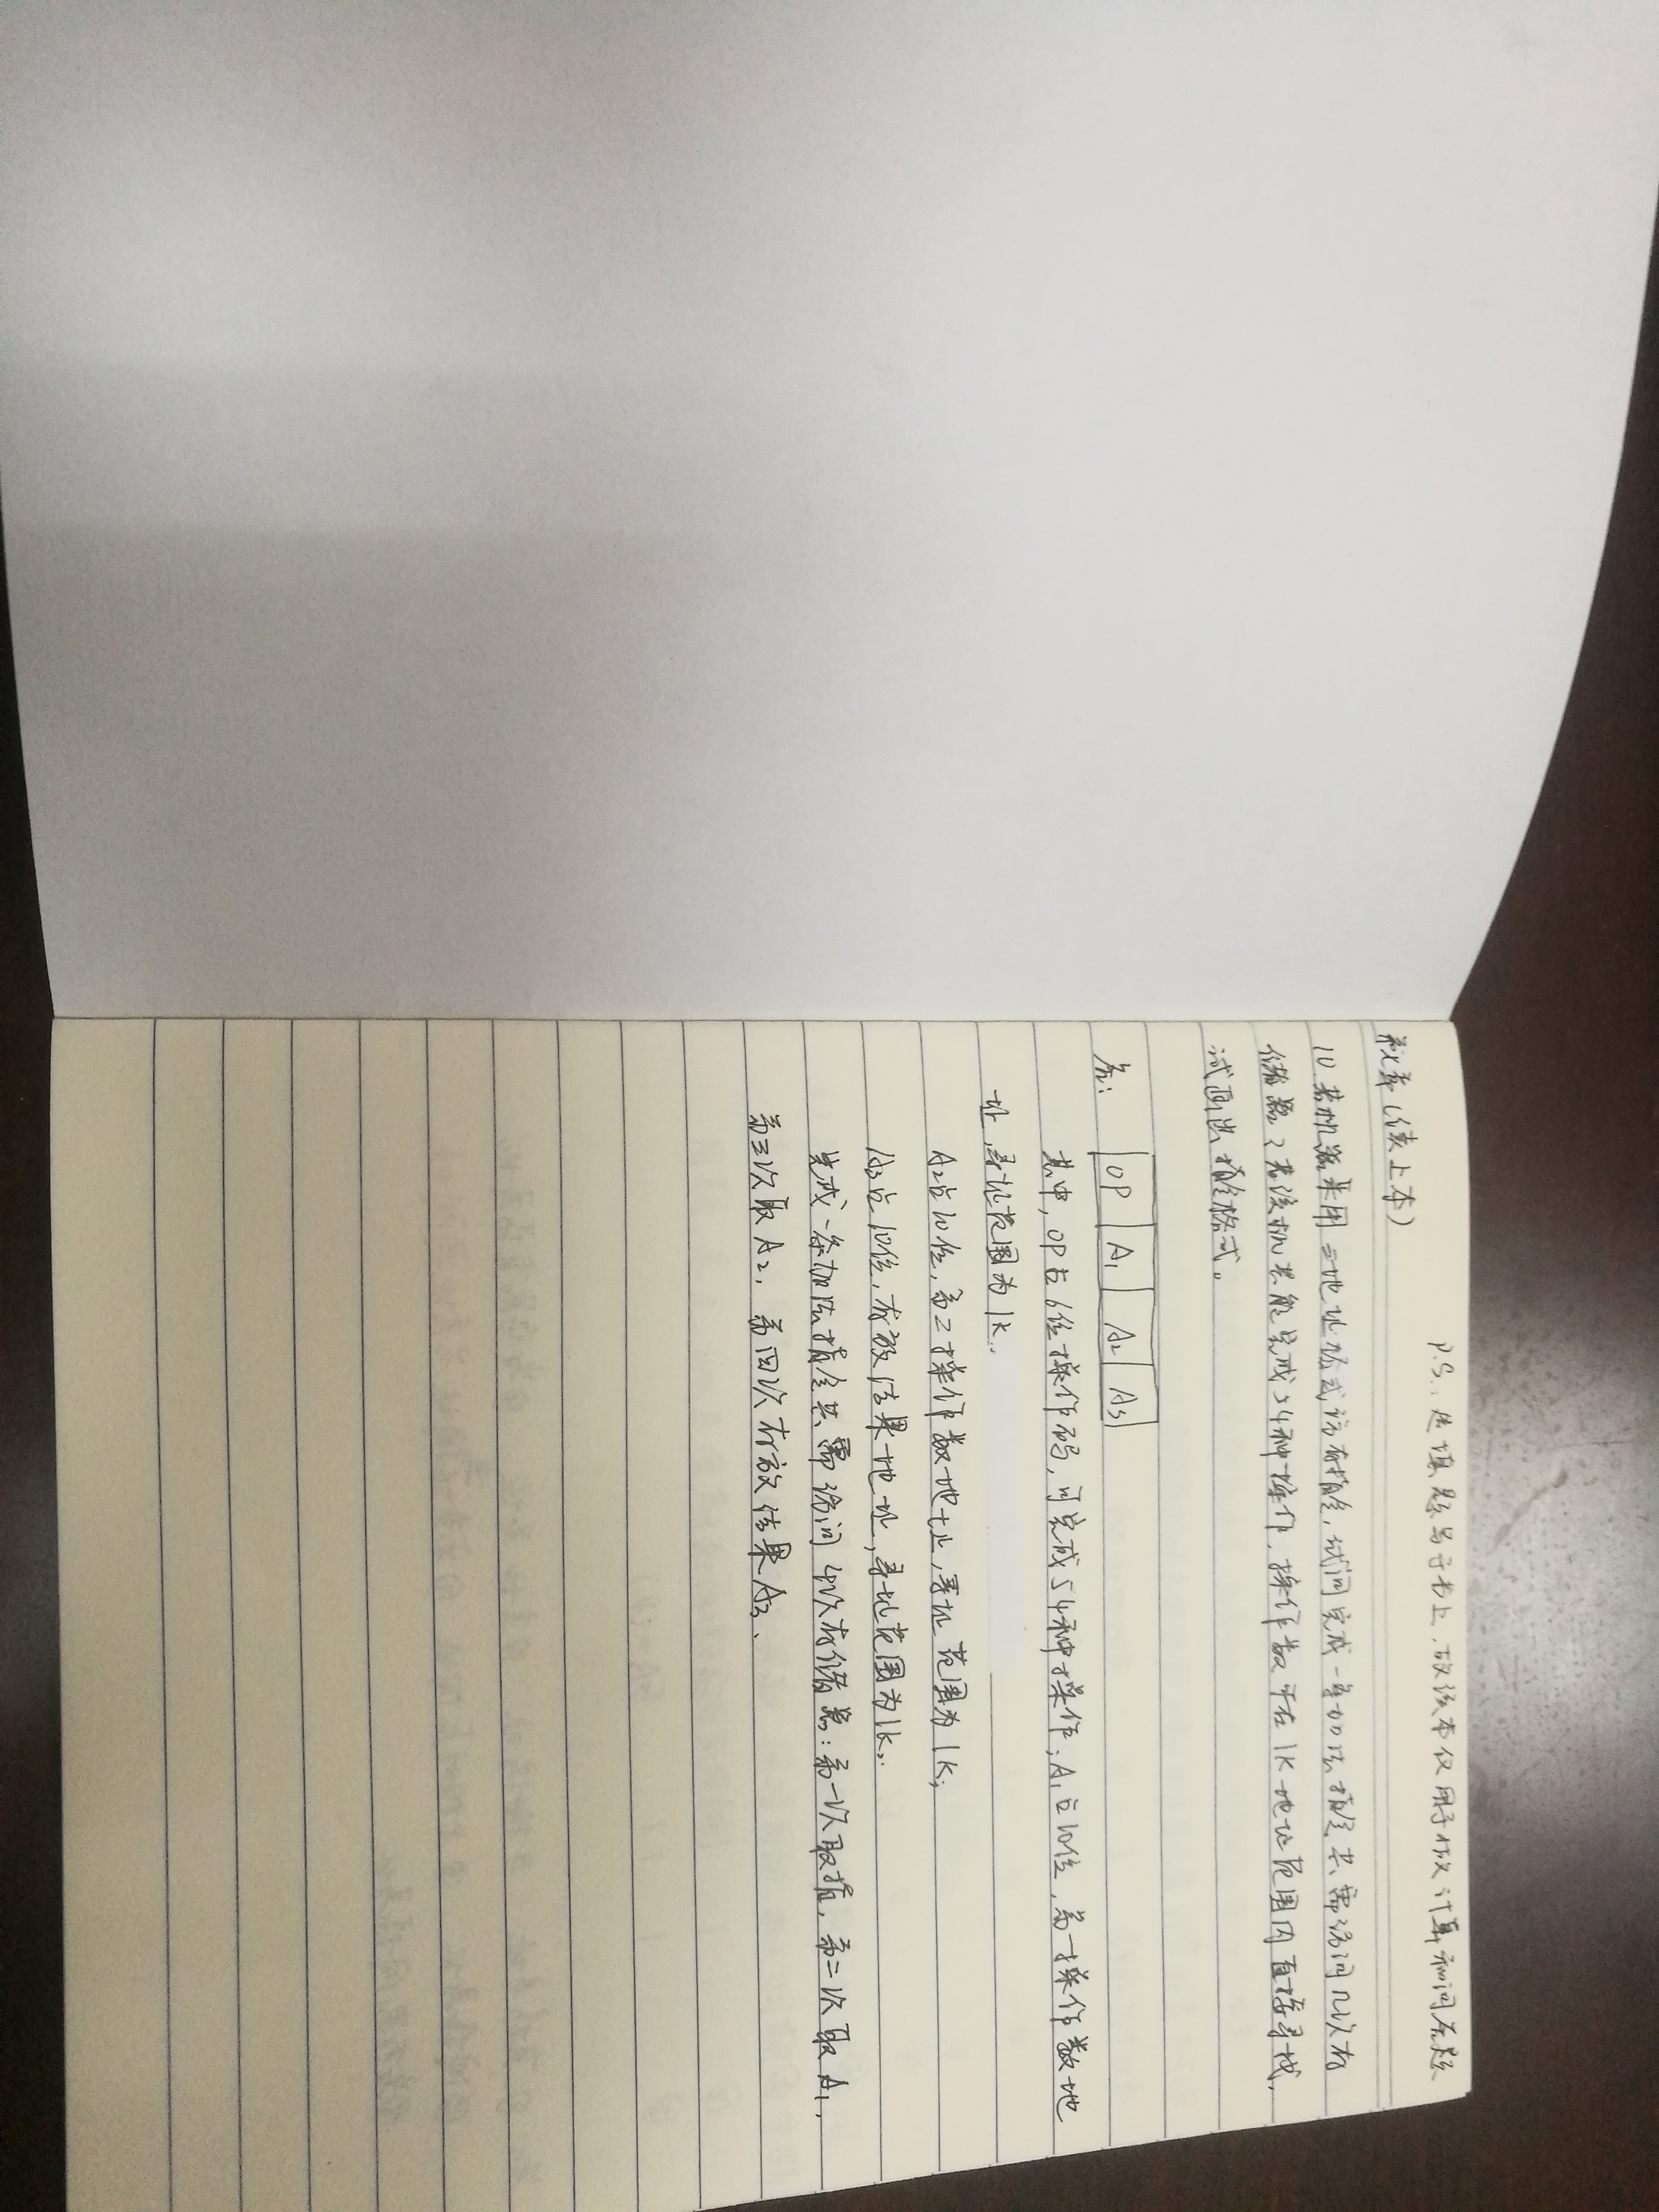 P.S.: 选填题写于书上,故该本仅用于做计算和问答题
第七章(续上本)
10 若机器采用三地址格式访存指令,试问完成一条加法指令共需访问几次存
储器?若该机共能完成54种操作,操作数可在1K地址范围内直接寻找,
试画出指令格式。
答:
OP A₁ A₂ A₃
其中,OP占6位操作码,可完成54种操作;A₁占10位,第一操作数地
址,寻址范围为1K;
A₂占10位,第2操作数地址,寻址范围为1K;
A₃占10位,存放结果地址,寻址范围为1K;
完成一条加法指令共需访问4次存储器:第一次取指,第二次取A₁,
第三次取A₂,第四次存放结果A₃.